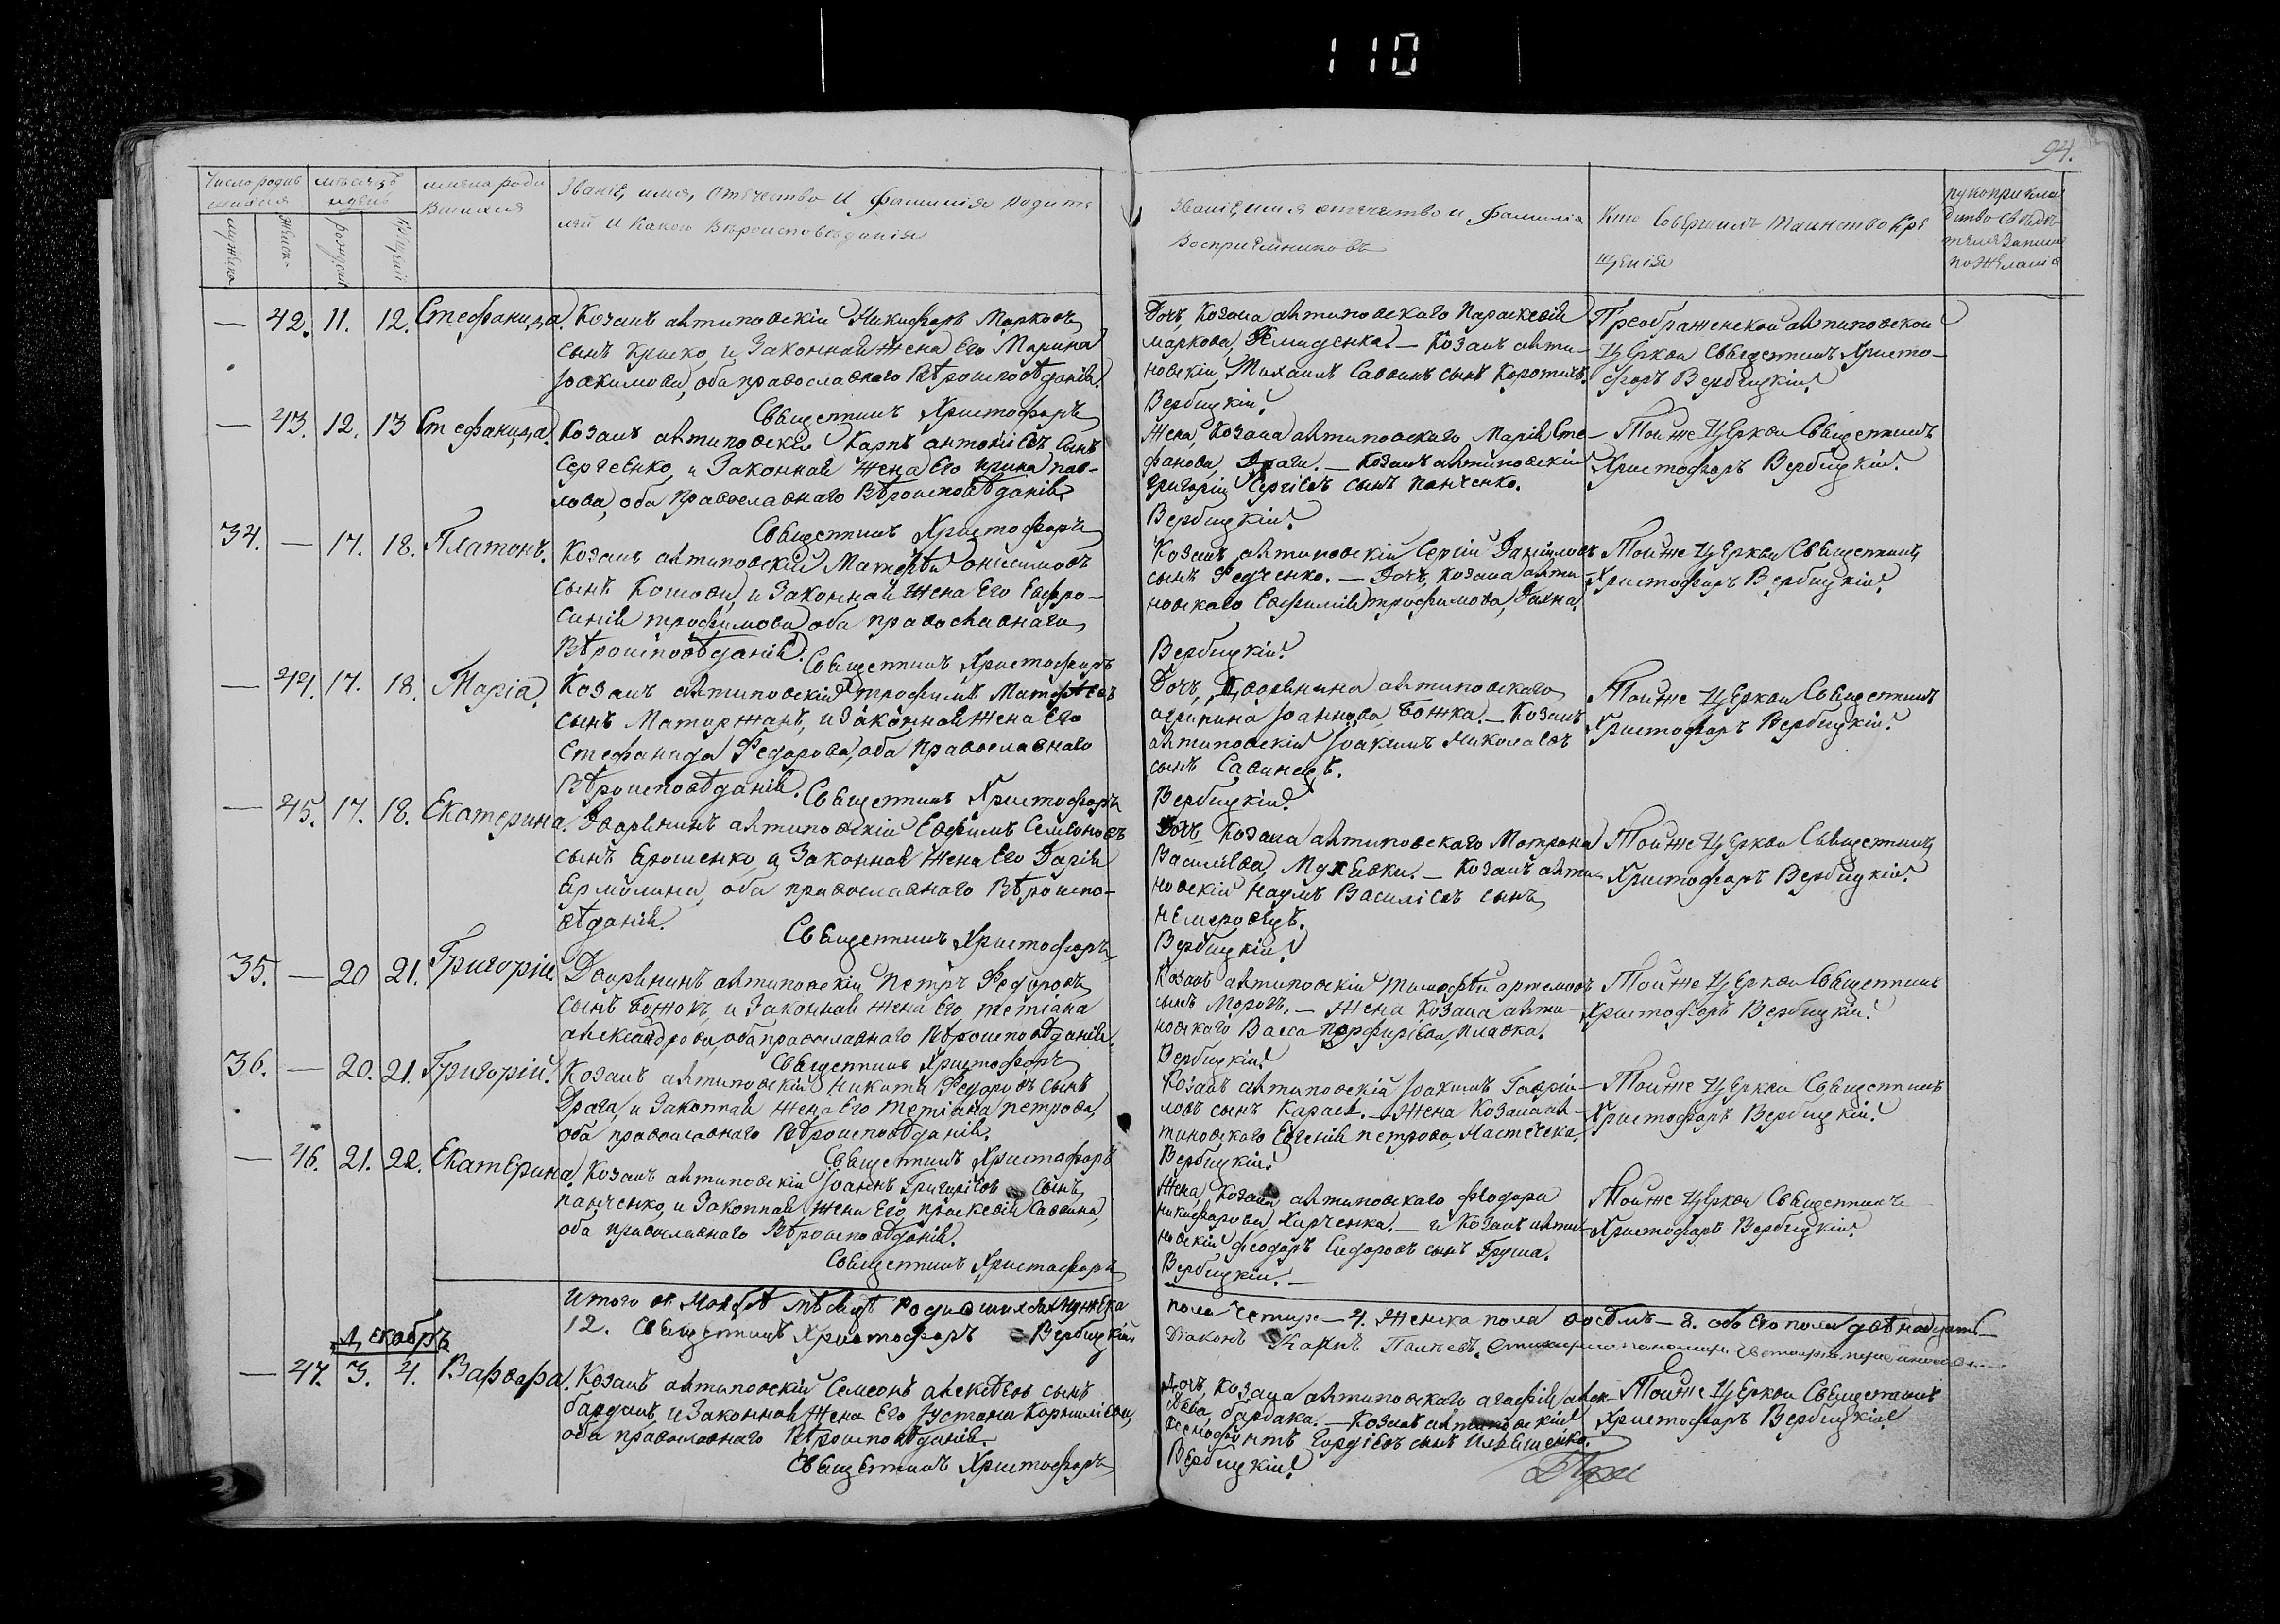 110
94.
Число родив
шихся
Мѣсяцъ
и день
имена роди
вшихся
Званіе, имя, Отечество И фамилія родите
лей И Какого Вѣроисповѣданія
Званіе, имя отечество и фамилія
Воспріемниковъ
Кто Совершилъ Таинство Кре
щенія
рукоприкла
дство свѣдѣ
телей записи
по желанію
мужеска
женск.
рожденія
крещенія
— 42. 11. 12. Стефанида. Козакъ антиповскій Никифоръ Марковъ
сынъ Криско, и Законная Жена Его Марина
Іоакимова, оба православнаго Вѣроисповѣданія.
Священникъ Христофоръ
Дочь, Козака антиповскаго Параскевія
маркова, Демиденка. — Козакъ анти-
повскій, Михаилъ Саввинъ сынъ Коротичъ.
Вербицкій.
Преображенской антиповской
Церкви Священникъ Христо-
форъ Вербицкій.
— 43. 12. 13 Стефанида. Козакъ антиповскій Карпъ антоніевъ Сынъ
Сергеенко, и Законная Жена Его Ирина пав-
лова, оба Православнаго Вѣроисповѣданія.
Священникъ Христофоръ
Жена, Козака антиповскаго Марія Сте-
фанова, Драги. — Козакъ антиповскій
Григорій Сергіевъ сынъ Панченко.
Вербицкій.
Тойже Церкви Священникъ
Христофоръ Вербицкій.
34. — 17. 18. Платонъ. Козакъ антиповскій Матфѣй Онисимовъ
сынъ Кошовы, и Законная Жена Его Евфро-
синія трофимова оба православнаго
Вѣроисповѣданія.
Священникъ Христофоръ
Козакъ антиповскій Сергій Даніиловъ
сынъ Федченко. — Дочь, Козака анти-
повскаго Евфимія трофимова, Дахна.
Вербицкій.
Тойже Церкви Священникъ
Христофоръ Вербицкій.
— 44. 17. 18. Марія. Козакъ антиповскій трофимъ Матфѣевъ
сынъ Матиржанъ, и Законная Жена Его
Стефанида Федорова, оба Православнаго
Вѣроисповѣданія.
Священникъ Христофоръ
Дочь, Дворянина антиповскаго
агрипина Іоаннова, Божка. — Козакъ
антиповскій Іоакимъ Николаевъ
сынъ Савинецъ.
Вербицкій.
Тойже Церкви Священникъ
Христофоръ Вербицкій.
— 45. 17. 18. Екатерина. Дворянинъ антиповскій Евфимъ Семеновъ
сынъ Ерошенко, и Законная Жена Его Дарія
Ермолина, оба православнаго Вѣроиспо-
вѣданія.
Священникъ Христофоръ
Дочь Козака антиповскаго Матрона
Василіева, — Козакъ анти-
повскій Наумъ Василіевъ сынъ
Немеровецъ.
Вербицкій.
Тойже Церкви Священникъ
Христофоръ Вербицкій.
35. — 20 21. Григорій. Дворянинъ антиповскій Петръ Федоровъ
сынъ Божокъ, и Законная Жена Его, Тетіана
александрова, оба православнаго Вѣроисповѣданія.
Священникъ Христофоръ
Козакъ антиповскій Тимофѣй артемовъ
сынъ Морозъ. — Жена Козака анти-
повскаго Васса Порфиріева, Плавка.
Вербицкій.
Тойже Церкви Священникъ
Христофоръ Вербицкій.
36. — 20. 21. Григорій. Козакъ антиповскій Никита Федоровъ сынъ
Драга, и Законная Жена Его Тетіана петрова,
оба православнаго Вѣроисповѣданія.
Священникъ Христофоръ
Козакъ антиповскій Іоакимъ Гавріи-
ловъ сынъ Карась. — Жена Козака ан-
типовскаго Евгенія петрова,
Вербицкій.
Тойже Церкви Священникъ
Христофоръ Вербицкій.
— 46. 21. 22. Екатерина. Козакъ антиповскій Іоаннъ Григоріевъ Сынъ
панченко, и Законная Жена Его, праскевія Саввина,
оба православнаго Вѣроисповѣданія.
Священникъ Христофоръ
Жена, Козака антиповскаго Феодора
никифорова, Харченка. — и Козакъ анти-
повскій, Феодоръ Сидоровъ сынъ Груша.
Вербицкій. —
Тойже Церкви Священникъ
Христофоръ Вербицкій.
Итого въ Ноябрѣ мѣсяцѣ родившихся мужеска
пола Четыре — 4. Женска пола восѣмъ — 8. обоего пола двѣнадцать —
12. Священникъ Христофоръ Вербицкій
Діаконъ Карпъ
Декабрь
— 47. 3. 4. Варвара. Козакъ антиповскій Семеонъ алексѣевъ сынъ
бардакъ, и Законная Жена Его Іустина Корниліева,
оба православнаго Вѣроисповѣданія.
Священникъ Христофоръ
Дочь, Козака антиповскаго агафія алек-
сѣева, бардака. — Козакъ антиповскій
Ксенофонтъ Гордіевъ сынъ Илляшенко.
Вербицкій.
Тойже Церкви Священникъ
Христофоръ Вербицкій.